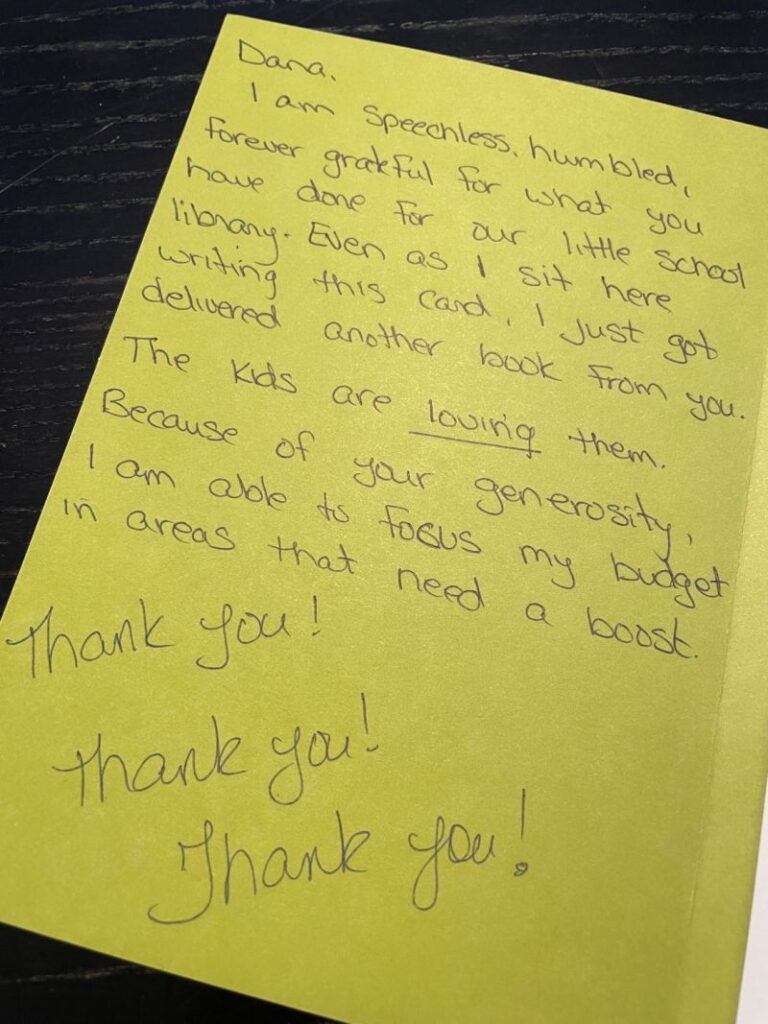 Dana,
I am speechless, humbled,
forever grateful for what you
have done for our little school
library. Even as I sit here
writing this card, I just got
delivered another book from you.
The kids are loving them.
Because of your generosity,
I am able to focus my budget
in areas that need a boost.
Thank you!
Thank you!
Thank you!